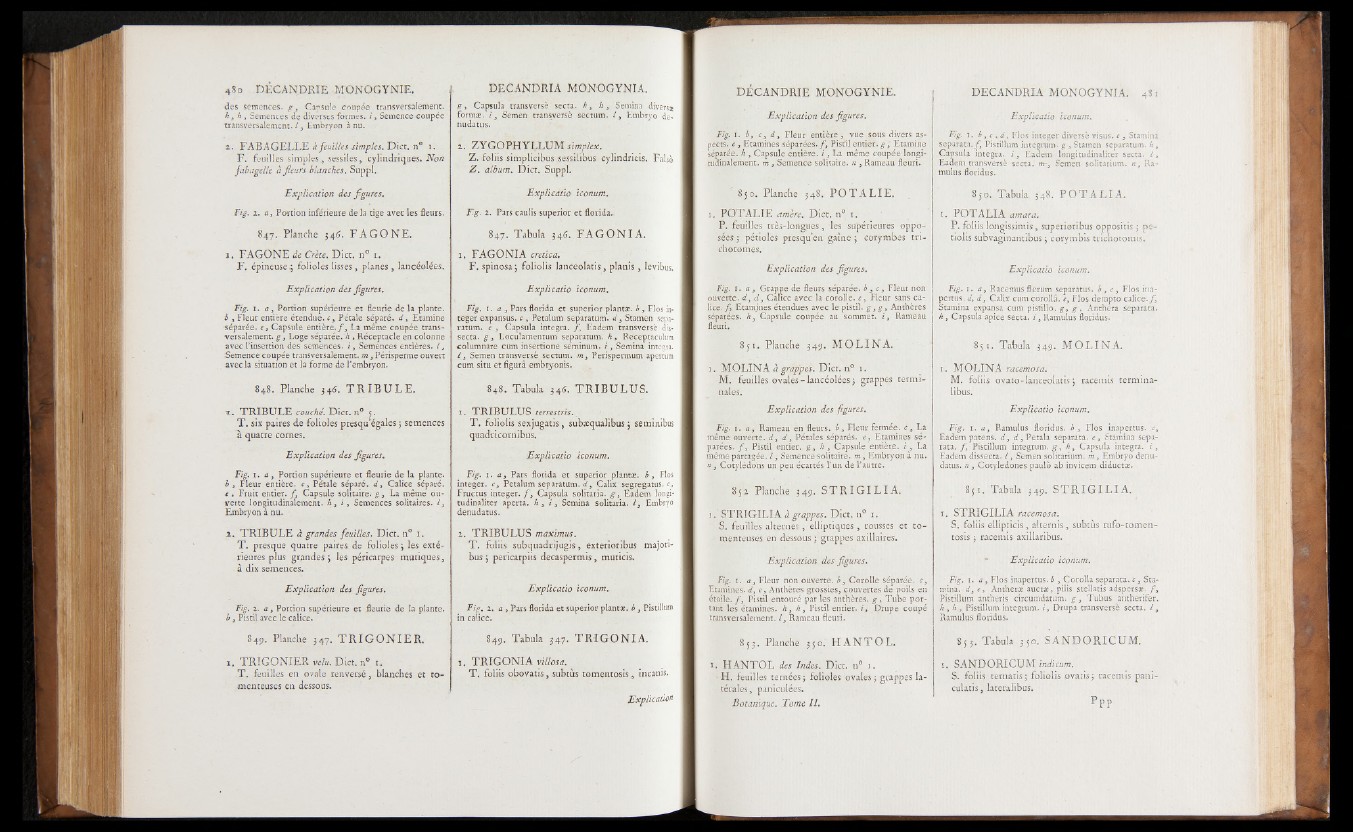 480 DÉCANDRIE MONOGYNIE.
des semences. g, Capsule coupée transversalement.
h, h, Semences de diverses formes. i, Semence coupée
transversalement. l, Embryon à nu.
2. FABAGELLE à feuilles simples. Dict. n° 1.
F. feuilles simples, sessiles, cylindriques. Non
fabagelle à fleurs blanches. Suppl.
Explication des figures.
Fig. 2. a, Portion inférieure de la tige avec les fleurs.
847. Planche 346. FAGONE.
1. FAGONE de Crète. Dict. n° 1.
F. épineuse; folioles lisses, planes, lancéolées.
Explication des figures.
Fig. 1. a, Portion supérieure et fleurie de la plante.
b, Fleur entière étendue. c, Pétale séparé. d, Etamine
séparée. e, Capsule entière. f, La même coupée trans-
versalement. g, Loge séparée. h, Réceptacle en colonne
avec l'insertion des semences. i, Semences entières. l,
Semence coupée transversalement. m, Périsperme ouvert
avec la situation et la forme de l'embryon.
848. Planche 346. TRIBULE.
1. TRIBULE couché. Dict. n° 5.
T. six paires de folioles presqu'égales; semences
à quatre cornes.
Explication des figures.
Fig. 1. a, Portion supérieure et fleurie de la plante.
b, Fleur entière. c, Pétale séparé. d, Calice séparé.
e. Fruit entier. f, Capsule solitaire. g, La même ou-
verte longitudinalement. h, i, Semences solitaires. l,
Embryon à nu.
2. TRIBULE à grandes feuilles. Dict. n° 1.
T. presque quatre paires de folioles; les exté-
rieures plus grandes; les péricarpes mutiques,
à dix semences.
Explication des figures.
Fig. 2. a, Portion supérieure et fleurie de la plante.
b, Pistil avec le calice.
849. Planche 347. TRIGONIER.
1. TRIGONIER velu. Dict. n° 1.
T. feuilles en ovale renversé, blanches et to-
menteuses en dessous.
DECANDRIA MONOGYNIA.
g, Capsula transversè secta. h, h, Semina diversæ
formæ. i, Semen transversè sectum. l, Embryo de-
nudatus.
2. ZYGOPHYLLUM simplex.
Z. foliis simplicibus sessilibus cylindricis. Falsò
Z. album. Dict. Suppl.
Explicatio iconum.
Fig. 2. Pars caulis superior et florida.
847. Tabula 346. FAGONIA.
1. FAGONIA cretica.
F. spinosa; foliolis lanceolatis, planis, levibus.
Explicatio iconum.
Fig. 1. a, Pars florida et superior plantæ. b, Flos in-
teger expansus. c, Petalum separatum. d, Stamen sepa-
ratum. e, Capsula integra. f, Eadem transversè dis-
secta. g, Loculamentum separatum. h, Receptaculum
columnare cum insertione seminum. i, Semina integra.
l, Semen transversè sectum. m, Perispermum apertum
cum situ et figurâ embryonis.
848. Tabula 346. TRIBULUS.
1. TRIBULUS terrestris.
T. foliolis sexjugatis, subæqualibus; seminibus
quadricornibus.
Explicatio iconum.
Fig. 1. a, Pars florida et superior plantæ. b, Flos
integer. c, Petalum separatum. d, Calix segregatus. e,
Fructus integer. f, Capsula solitaria. g, Eadem longi-
tudinaliter aperta. h, i, Semina solitaria. l, Embryo
denudatus.
2. TRIBULUS maximus.
T. foliis subquadrijugis, exterioribus majori-
bus; pericarpiis decaspermis, muticis.
Explicatio iconum.
Fig. 2. a, Pars florida et superior plantæ. b, Pistillum
in calice.
849. Tabula 347. TRIGONIA.
1. TRIGONIA villosa.
T. foliis obovatis, subtùs tomentosis, incanis.
Explication
DÉCANDRIE MONOGYNIE.
Explication des figures.
Fig. 1. b, c, d, Fleur entière, vue sous divers as-
pects. e, Etamines séparées. f, Pistil entier. g, Etamine
séparée. h, Capsule entière. i, La même coupée longi-
tudinalement. m, Semence solitaire. a, Rameau fleuri.
850. Planche 348. POTALIE.
1. POTALIE amère. Dict. n° 1.
P. feuilles très-longues, les supérieures oppo-
sées; pétioles presqu'en gaîne; corymbes tri-
chotomes.
Explication des figures.
Fig. 1. a, Grappe de fleurs séparée. b, c, Fleur non
ouverte. d, d, Calice avec la corolle. e, Fleur sans ca-
lice. f, Etamines étendues avec le pistil. g, g, Anthères
séparées. h, Capsule coupée au sommet. i, Rameau
fleuri.
851. Planche 349. MOLINA.
1. MOLINA à grappes. Dict. n° 1.
M. feuilles ovales-lancéolées; grappes termi-
nales.
Explication des figures.
Fig. 1. a, Rameau en fleurs. b, Fleur fermée. c, La
même ouverte. d, d, Pétales séparés. e, Etamines sé-
parées. f, Pistil entier. g, h, Capsule entière. i, La
même partagée. l, Semence solitaire. m, Embryon à nu.
n, Cotylédons un peu écartés l'un de l'autre.
852 Planche 349. STRIGILIA.
1. STRIGILIA à grappes. Dict. n° 1.
S. feuilles alternes, elliptiques, rousses et to-
menteuses en dessous; grappes axillaires.
Explication des figures.
Fig. 1. a, Fleur non ouverte. b, Corolle séparée. c,
Etamines. d, e, Anthères grossies, couvertes de poils en
étoile. f, Pistil entouré par les anthères. g, Tube por-
tant les étamines. h, h, Pistil entier. i, Drupe coupé
transversalement. l, Rameau fleuri.
853. Planche 350. HANTOL.
1. HANTOL des Indes. Dict. n° 1.
H. feuilles ternées; folioles ovales; grappes la-
térales, paniculées.
Botanique. Tome II.
DECANDRIA MONOGYNIA. 481
Explicatio iconum.
Fig. 1. b, c, d, Flos integer diversè visus. e, Stamina
separata. f, Pistillum integrum. g, Stamen separatum. h,
Capsula integra. i, Eadem longitudinaliter secta. l,
Eadem transversè secta. m, Semen solitarium. a, Ra-
mulus floridus.
850. Tabula 348. POTALIA.
1. POTALIA amara.
P. foliis longissimis, superioribus oppositis; pe-
tiolis subvaginantibus; corymbis trichotomis.
Explicatio iconum.
Fig. 1. a, Racemus florum separatus. b, c, Flos ina-
pertus. d, d, Calix cum corollâ. e, Flos dempto calice. f,
Stamina expansa cum pistillo. g, g, Anthera separata.
h, Capsula apice secta. i, Ramulus floridus.
851. Tabula 349. MOLINA.
1. MOLINA racemosa.
M. foliis ovato-lanceolatis; racemis termina-
libus.
Explicatio iconum.
Fig. 1. a, Ramulus floridus. b, Flos inapertus. c,
Eadem patens. d, d, Petala separata. e, Stamina sepa-
rata. f, Pistillum integrum. g, h, Capsula integra. i,
Eadem dissecta. l, Semen solitarium. m, Embryo denu-
datus. n, Cotyledones paulò ab invicem diductæ.
851. Tabula 349. STRIGILIA.
1. STRIGILIA racemosa.
S. foliis ellipticis, alternis, subtùs rufo-tomen-
tosis; racemis axillaribus.
Explicatio iconum.
Fig. 1. a, Flos inapertus. b, Corolla separata. c, Sta-
mina. d, e, Antheræ auctæ, pilis stellatis adspersæ. f,
Pistillum antheris circumdatum. g, Tubus antherifer.
h, h, Pistillum integrum. i, Drupa transversè secta. l,
Ramulus floridus.
853. Tabula 350. SANDORICUM.
1. SANDORICUM indicum.
S. foliis ternatis; foliolis ovatis; racemis pani-
culatis, lateralibus.
Ppp